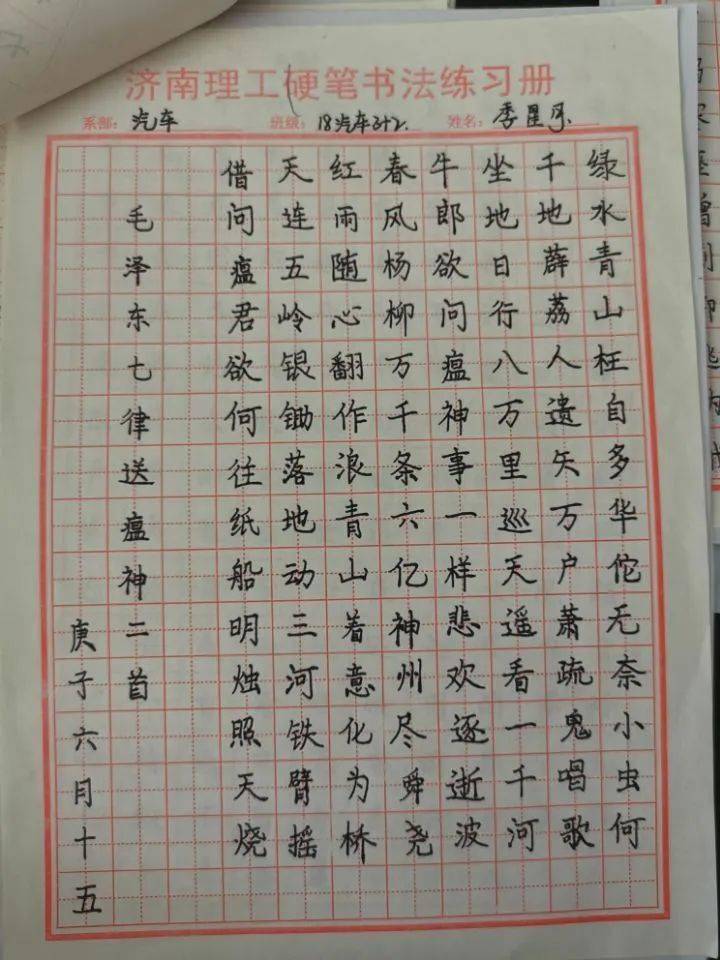 济南理工硬笔书法练习册
系部：汽车 班级：18汽车3+2. 姓名：
绿水青山枉自多华佗无奈小虫何
千地薜荔人遗矢万户萧疏鬼唱歌
坐地日行八万里巡天遥看一千河
牛郎欲问瘟神事一样悲欢逐逝波
春风杨柳万千条六亿神州尽舜尧
红雨随心翻作浪青山着意化为桥
天连五岭银锄落地动三河铁臂摇
借问瘟君欲何往纸船明烛照天烧
毛泽东七律送瘟神二首
庚子六月十五